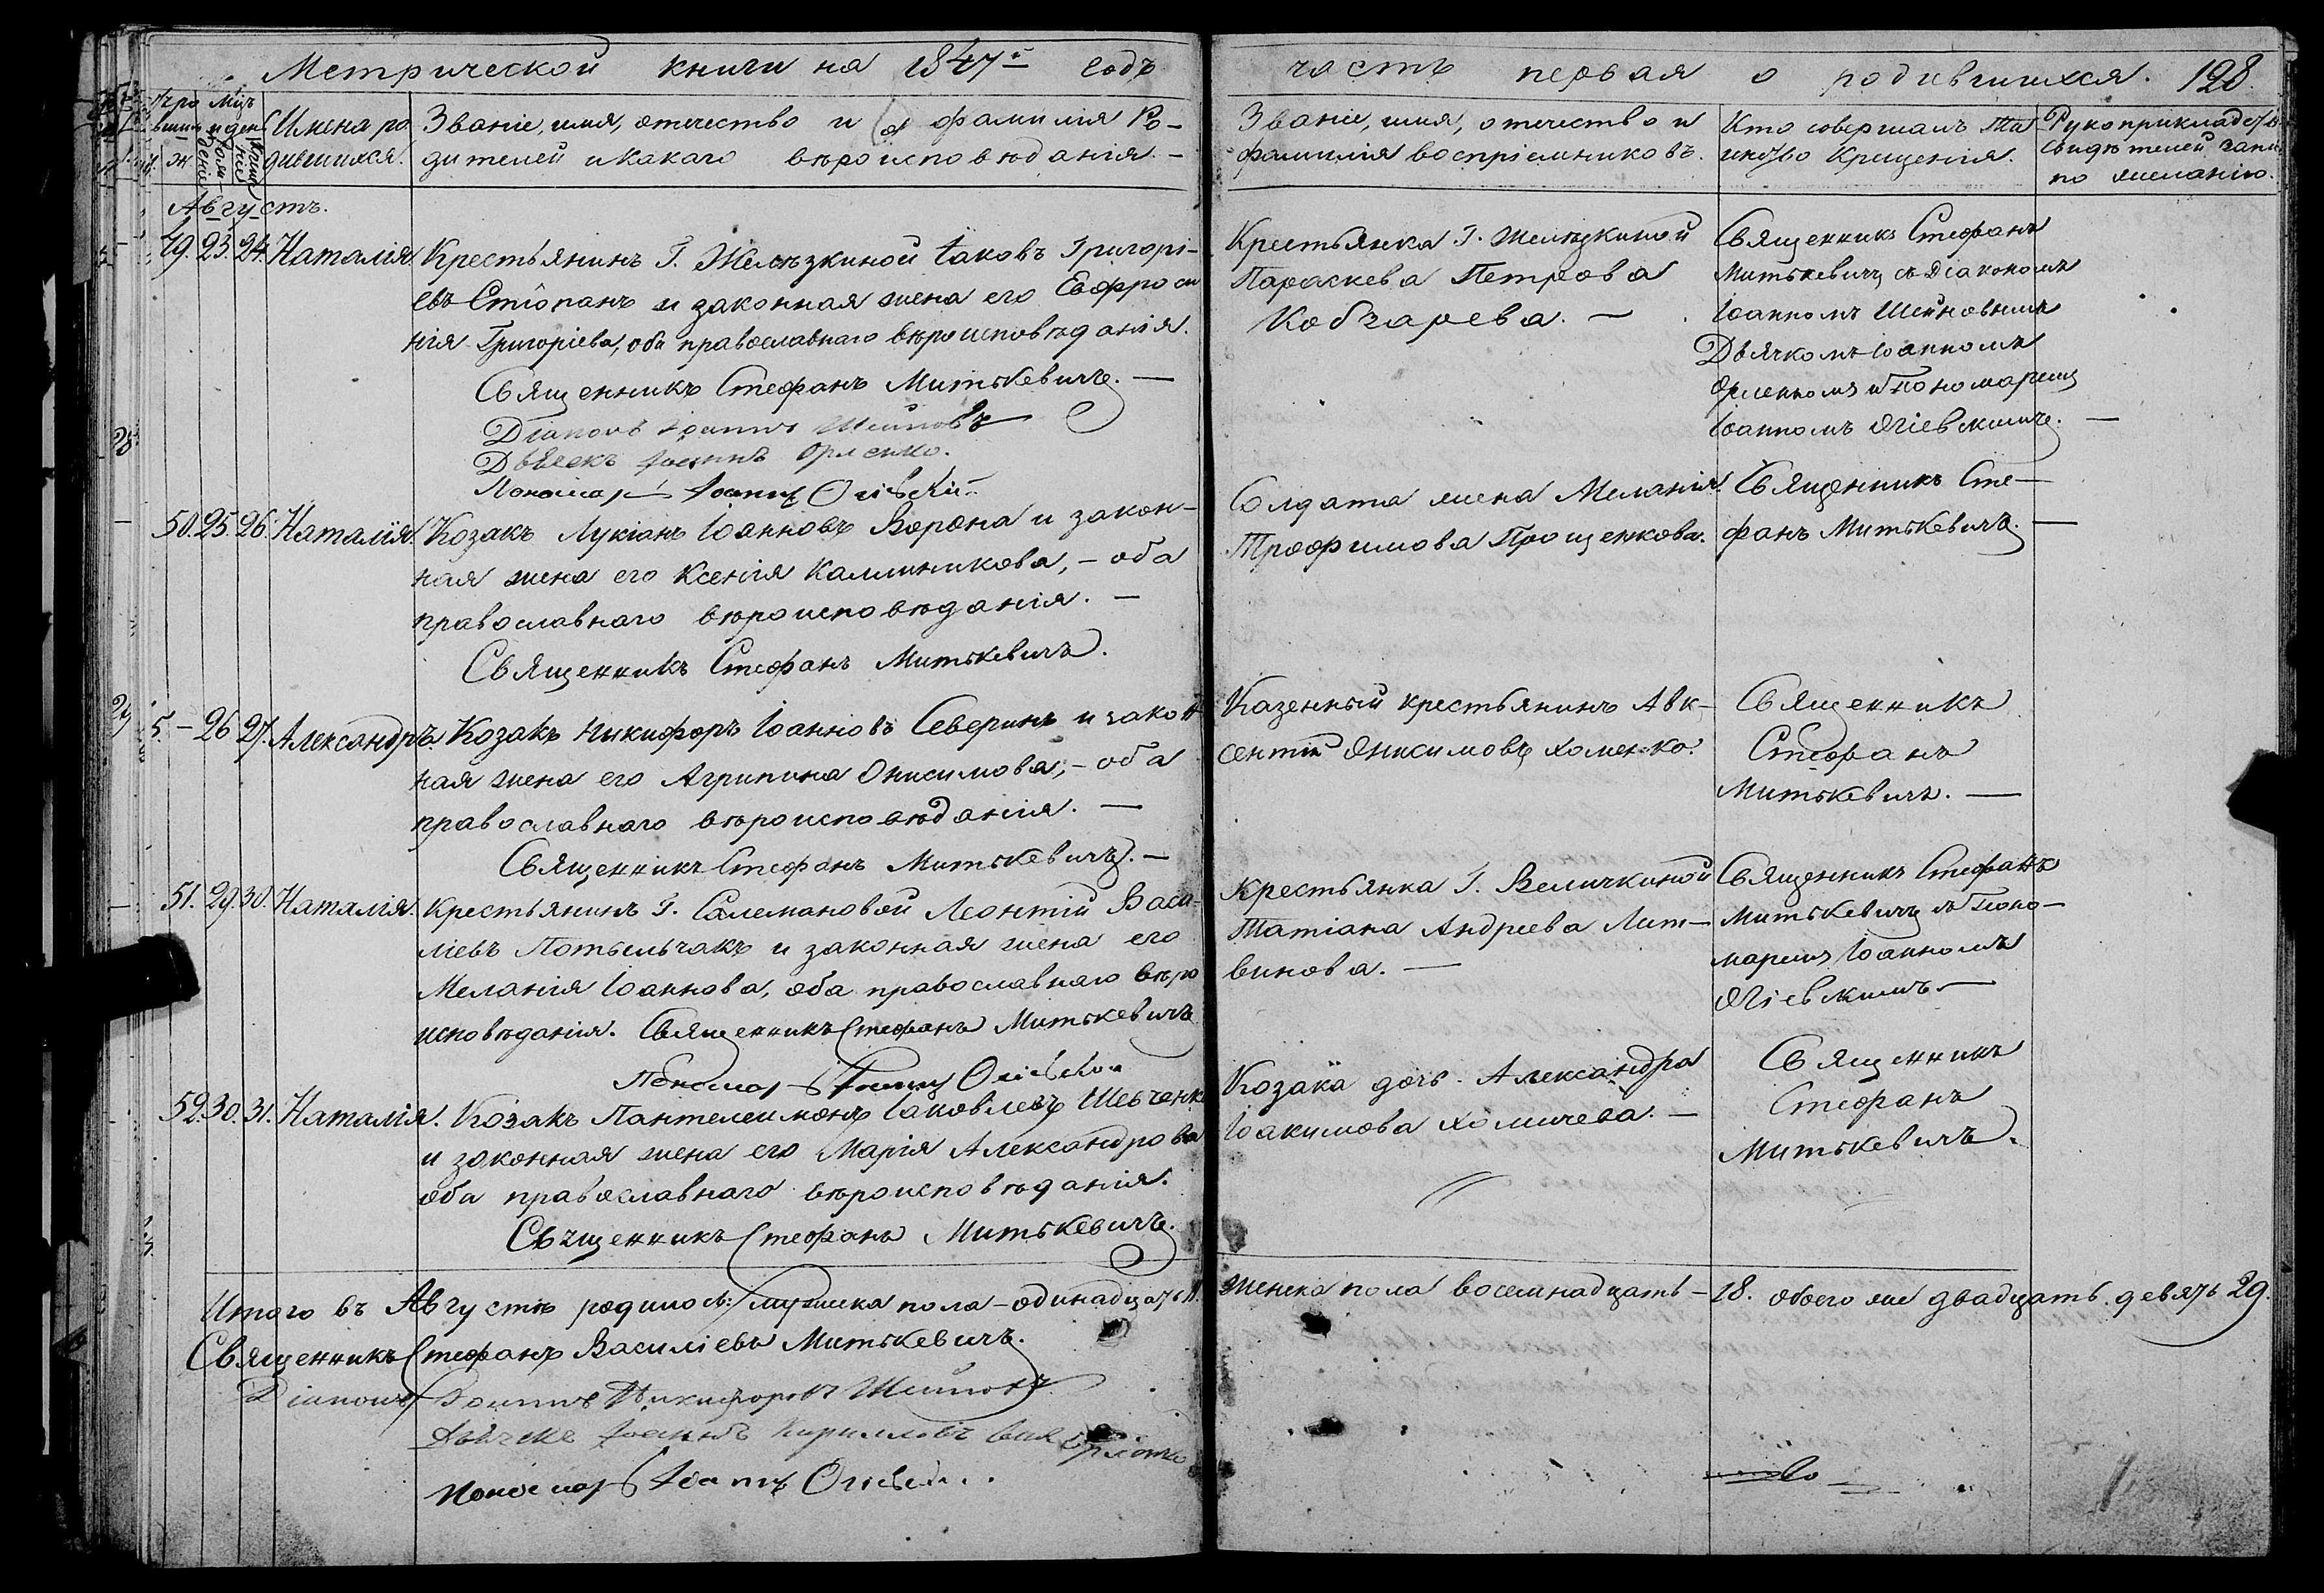 Метрической книги на 1847й годъ
часть первая о родившихся. 128.
Имена ро
дившихся.
Званіе, имя, отечество и фамилія Ро-
дителей и какаго вѣроисповѣданія. -
Званіе, имя, отечество и
фамилія воспріемниковъ.
Кто совершалъ Таи
инство Крещенія.
Рукоприкладство
свидѣтелей запи
по желанію.
Августъ.
49. 23. 24. Наталія. Крестьянинъ Г. Желѣзкиной Іаковъ Григорі-
евъ Стіопанъ и законная жена его Евфроси
нія Григоріева, оба православнаго вѣроисповѣданія.
Священникъ Стефанъ Митькевичъ. —
Діаконъ Іоаннъ Шейновъ
Дьячекъ Іоаннъ Орленко.
Пономарь Іоаннъ Огіевскій
Крестьянка Г. Желѣзкиной
Параскева Петрова
Кобзарева. —
Священникъ Стефанъ
Митькевичъ съ Діакономъ
Іоанномъ Шейновымъ
Дьячкомъ Іоанномъ
Орленкомъ и Пономаремъ
Іоанномъ Огіевскимъ. —
50. 25. 26. Наталія. Козакъ Лукіанъ Іоанновъ Ворона и закон-
ная жена его Ксенія Калиникова, - оба
православнаго вѣроисповѣданія. —
Священникъ Стефанъ Митькевичъ.
Солдата жена Меланія
Трофимова Прощенкова.
Священникъ Сте-
фанъ Митькевичъ. —
5. — 26 27. Александръ Козакъ Никифоръ Іоанновъ Северинъ и закон
ная жена его Агрипина Онисимова; - оба
православнаго вѣроисповѣданія. —
Священникъ Стефанъ Митькевичъ. —
Казенный крестьянинъ Авк-
сентій Онисимовъ Хоменко.
Священникъ
Стефанъ
Митькевичъ. —
51. 29. 30. Наталія. Крестьянинъ Г. Солемановой Леонтій Васи-
ліевъ Потыльчакъ и законная жена его
Меланія Іоаннова, оба православнаго вѣро
исповѣданія. Священникъ Стефанъ Митькевичъ
Пономарь Іоаннъ Огіевскій
Крестьянка Г. Величкиной
Татіана Андреева Лит-
винова. —
Священникъ Стефанъ
Митькевичъ съ Поно-
маремъ Іоанномъ
Огіевскимъ —
52. 30. 31. Наталія. Козакъ Пантелеимонъ Іаковлевъ Шевченк
и законная жена его Марія Александрова
оба православнаго вѣроисповѣданія.
Священникъ Стефанъ Митькевичъ.
Козака дочь Александра
Іоакимова Хомичева. —
Священникъ
Стефанъ
Митькевичъ.
Итого въ Августѣ родилось: мужеска пола - одинадцать 11.
женска пола восемнадцать - 18. обоего же двадцать девять 29.
Священникъ Стефанъ Василіевъ Митькевичъ.
Діаконъ Іоаннъ Никифоровъ Шейновъ
Дьячекъ Іоаннъ Кирилловъ Орленко
Пономарь Іоаннъ Огіевскій